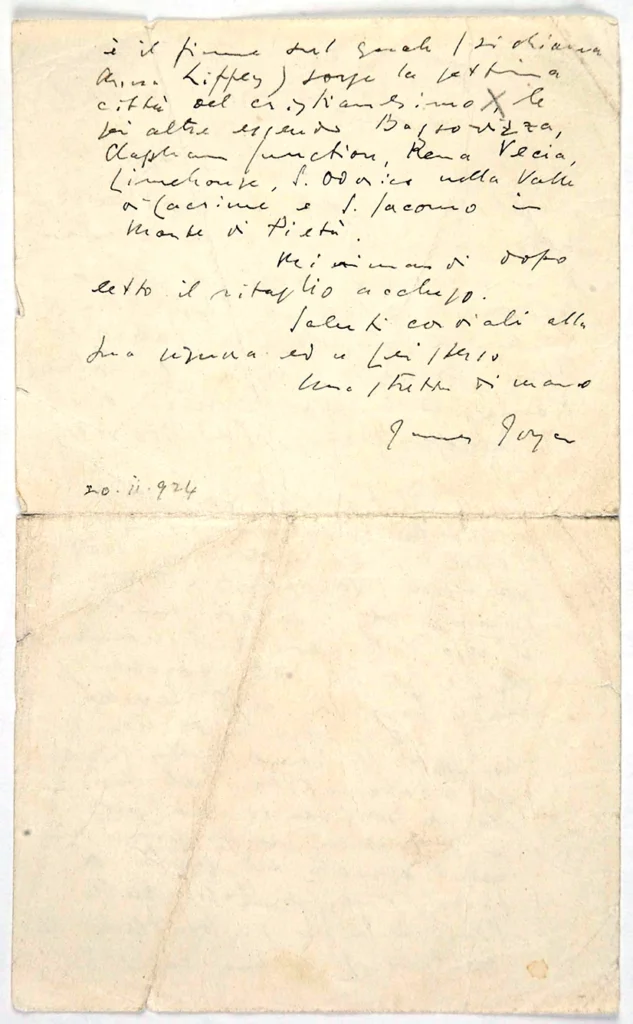 è il fiume sul quale (si chiama
Anna Liffey) sorge la settima
città del cristianesimo X, le
sei altre essendo Basovizza,
Clapham Junction, Rena Vecia,
Limehouse, S. Odorico nella Valle
di Lacrime e S. Giacomo in
Monte di Pietà.
Mi rimandi dopo
letto il ritaglio accluso.
Saluti cordiali alla
Sua signora ed a Lei stesso
Una stretta di mano
James Joyce
20.ii.924